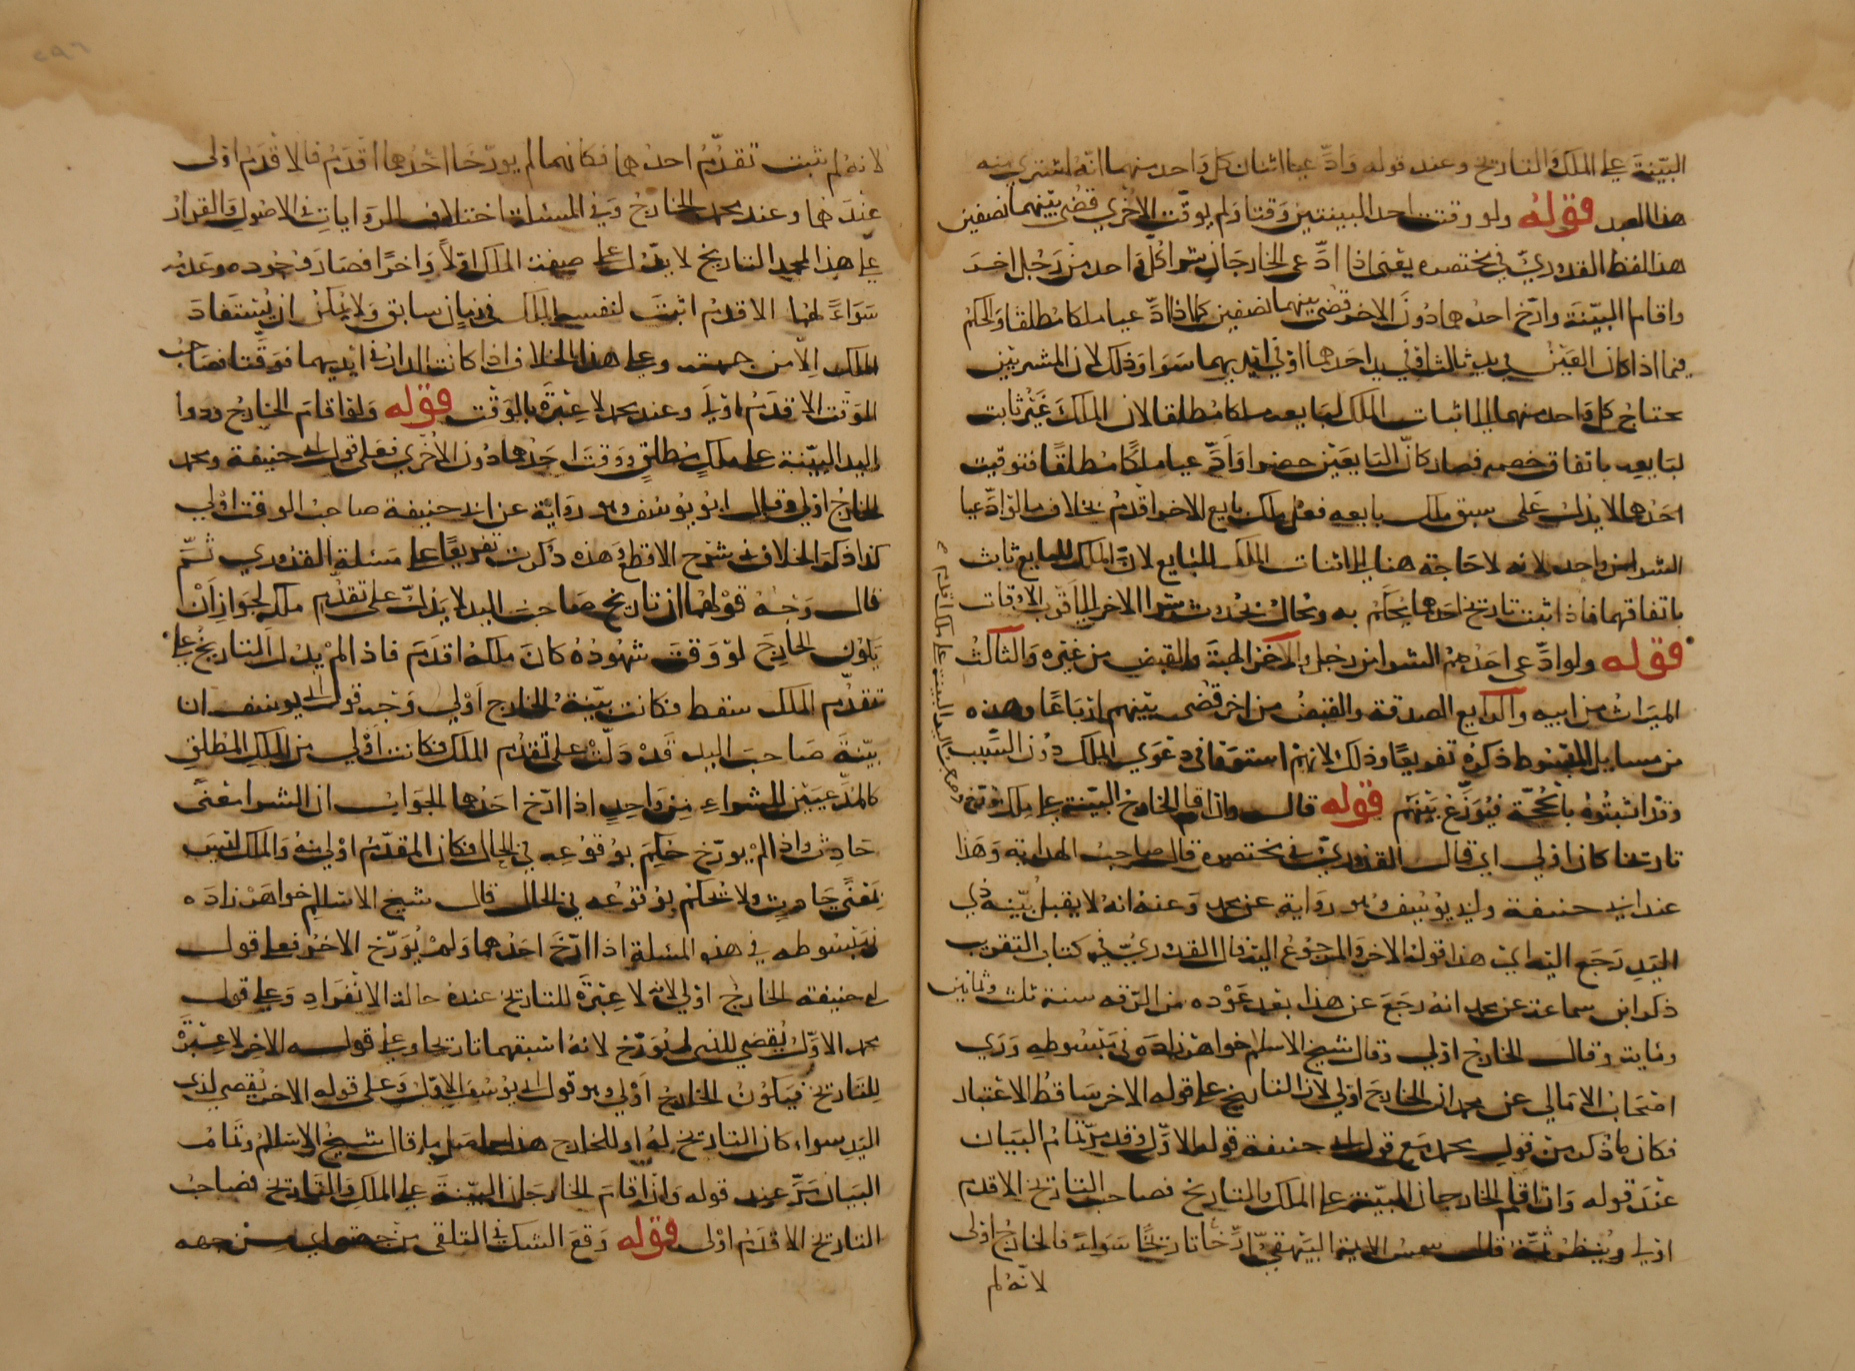 البيّنة على الملك والتاريخ وعند قوله وادّعيا اثنان كل واحد منهما انّه اشتري منه
هذا العبد قوله ولو وقتت احد البينتين وقتا ولم يوقّت الاخري قُضي بينهما نصفين
هذا لفظ القدوريّ في مختصره يعني اذا ادّعى الخارجان شرا كل واحد من رجل اخر
واقاما البيّنة وارّخ احدهما دون الاخر قضي بينهما نصفين كما اذا ادّعيا ملكا مطلقا والحكم
فيما اذا كان العين في يد ثالث او في يد احدهما او في ايديهما سوا وذلك لان المشتريين
يحتاج كل واحد منهما الى اثبات الملك لبايعه ملكا مطلقا لان الملك غير ثابت
لبايعه باتفاق خصمه فصار كانّ البايعين حضرا وادّعيا ملكًا مطلقًا فتوقيت
احدهما لا يدل على سبق ملك بايعه فعل ملك بايع الاخر اقدم بخلاف ما لو ادّعيا
الشرا من واحد لانه لا حاجة هنا الى اثبات الملك للبايع لانّ الملك للبايع ثابت
باتفاقهما فاذا اثبت تاريخ احدهما يحكم به ويحال بحدوث شرا الاخر الى اقرب الاوقات
قوله ولو ادّعى احدهم الشرا من رجل والاخر الهبة والقبض من غيره والثالث
الميراث من ابيه والرابع الصدقة والقبض من اخر قضى بينهم ارباعًا وهذه
من مسايل المبسوط ذكره تفريعًا وذلك لانهم استووا في دعوى الملك دون السبب
وقد اثبتوه بالحجّة فيوزّع بينهم قوله قال واذا اقام الخارج البيّنة على ملك مؤرخ
وصاحب اليد البينة على ملك اقدم
تاريخا كان اولى اي قال القدوريّ في مختصره قال صاحب الهداية وهذا
عند ابي حنيفة وابي يوسف وهو رواية عن محمد وعنه انه لا يقبل بيّنة ذي
اليد رجع اليه اي هذا قوله الاخر والمرجوع اليه قال القدوريّ في كتاب التقريب
ذكر ابن سماعة عن محمد انه رجع عن هذا بعد عوده من الرقه سنة ثلث وثمانين
وماية وقال الخارج اولي وقال شيخ الاسلام خواهر زاده في مبسوطه وروي
اصحاب الامالي عن محمد ان الخارج اولي لان التاريخ على قوله الاخر ساقط الاعتبار
فكان ما ذكر من قول محمد مع قول ابي حنيفة قوله الاول وقد مرّ تمام البيان
عند قوله واذا اقام الخارجان البيّنة على الملك والتاريخ فصاحب التاريخ الاقدم
اولي وينظر ثمّة قال شمس الايمة البيهقيّ ارّخا تاريخًا سواء فالخارج اولى
لانّه لم
لانه لم يثبت تقدّم احدهما فكانهما لم يورّخا احدهما اقدم فالاقدم اولى
عندهما وعند محمد الخارج وفي المسئلة اختلاف الروايات في الاصول والقرار
على هذا لمحمد التاريخ لا يدل على صيغة الملك اوّلاً واخرًا فصار وجوده وعدمه
سواءً لهما الاقدم اثبت لنفسه الملك في زمان سابق ولا يمكن ان يستفاد
الملك الا من جهته وعلى هذا الخلاف اذا كانت الدار في ايديهما فوقّتا فصاحب
الوقت الاقدم اولي وعند محمد لا عبرة بالوقت قوله ولو اقام الخارج وذوا
اليد البيّنة على ملكٍ مطلقٍ ووقت احدهما دون الاخري فعلى قول ابي حنيفة ومحمد
الخارج اولي وقال ابو يوسف وهو رواية عن ابي حنيفة صاحب الوقت اولي
كذا ذكر الخلاف في شرح الاقطع وهذه ذكرت تفريعًا على مسئلة القدوري ثمّ
قال وجه قولهما ان تاريخ صاحب اليد لا يدلّ على تقدّم ملكه لجواز ان
يكون الخارج لو وقت شهوده كان ملكه اقدم فاذا لم يدل التاريخ على
تقدّم الملك سقط فكانت بيّنة الخارج اولي وجه قول ابي يوسف ان
بيّنة صاحب اليد قد دلّت على تقدم الملك فكانت اولي من الملك المطلق
كالمدّعيين للشراء من واحدٍ اذا ارّخ احدهما الجواب ان الشرا معنى
حادث واذا لم يورّخ حكم بوقوعه في الحال فكان المقدّم اولي منه والملك ليس
بمعنىً حادثٍ ولا نحكم بوقوعه في الحال قال شيخ الاسلام خواهر زاده
في مبسوطه في هذه المسئلة اذا ارّخ احدهما ولم يورّخ الاخر فعلى قول
ابي حنيفة الخارج اولي لانه لا عبرة للتاريخ عنده حالة الانفراد وعلى قول
محمد الاوّل يُقضي للذي يورّخ لانه اسبقهما تاريخا وعلى قوله الاخر لا عبرة
للتاريخ فيكون الخارج اولي وهو قول ابي يوسف الاول وعلى قوله الاخر يقضي لذي
اليد سواء كان التاريخ له او للخارج هذا حاصل ما قال شيخ الاسلام وتمام
البيان مرّ عند قوله واذا اقام الخارجان البيّنة على الملك والتاريخ فصاحب
التاريخ الاقدم اولى قوله وقع الشك في التلقي من جهته من جهه